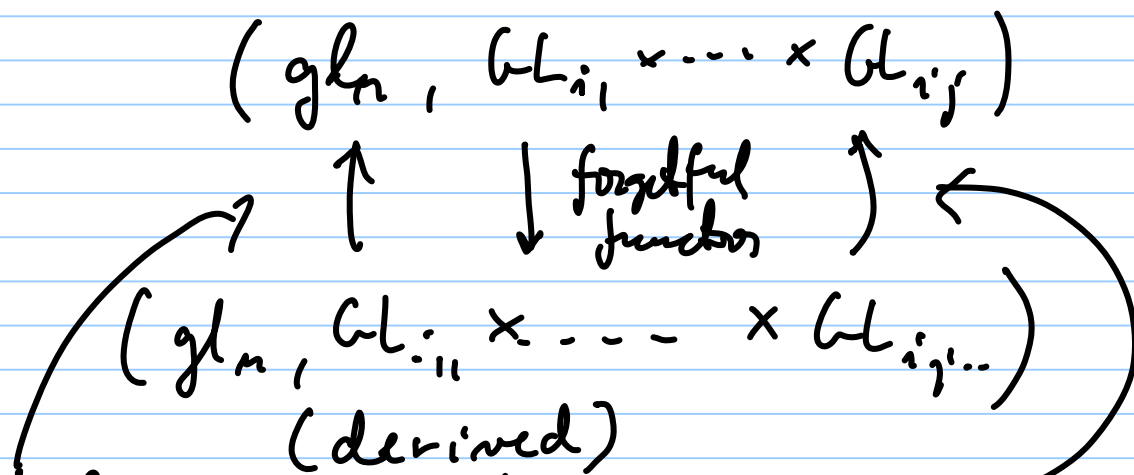 (gl_n, GL_{i_1} × ··· × GL_{i_j})
forgetful
functors
(gl_n, GL_{i_{11}} × ···· × GL_{i_{j}..})
(derived)